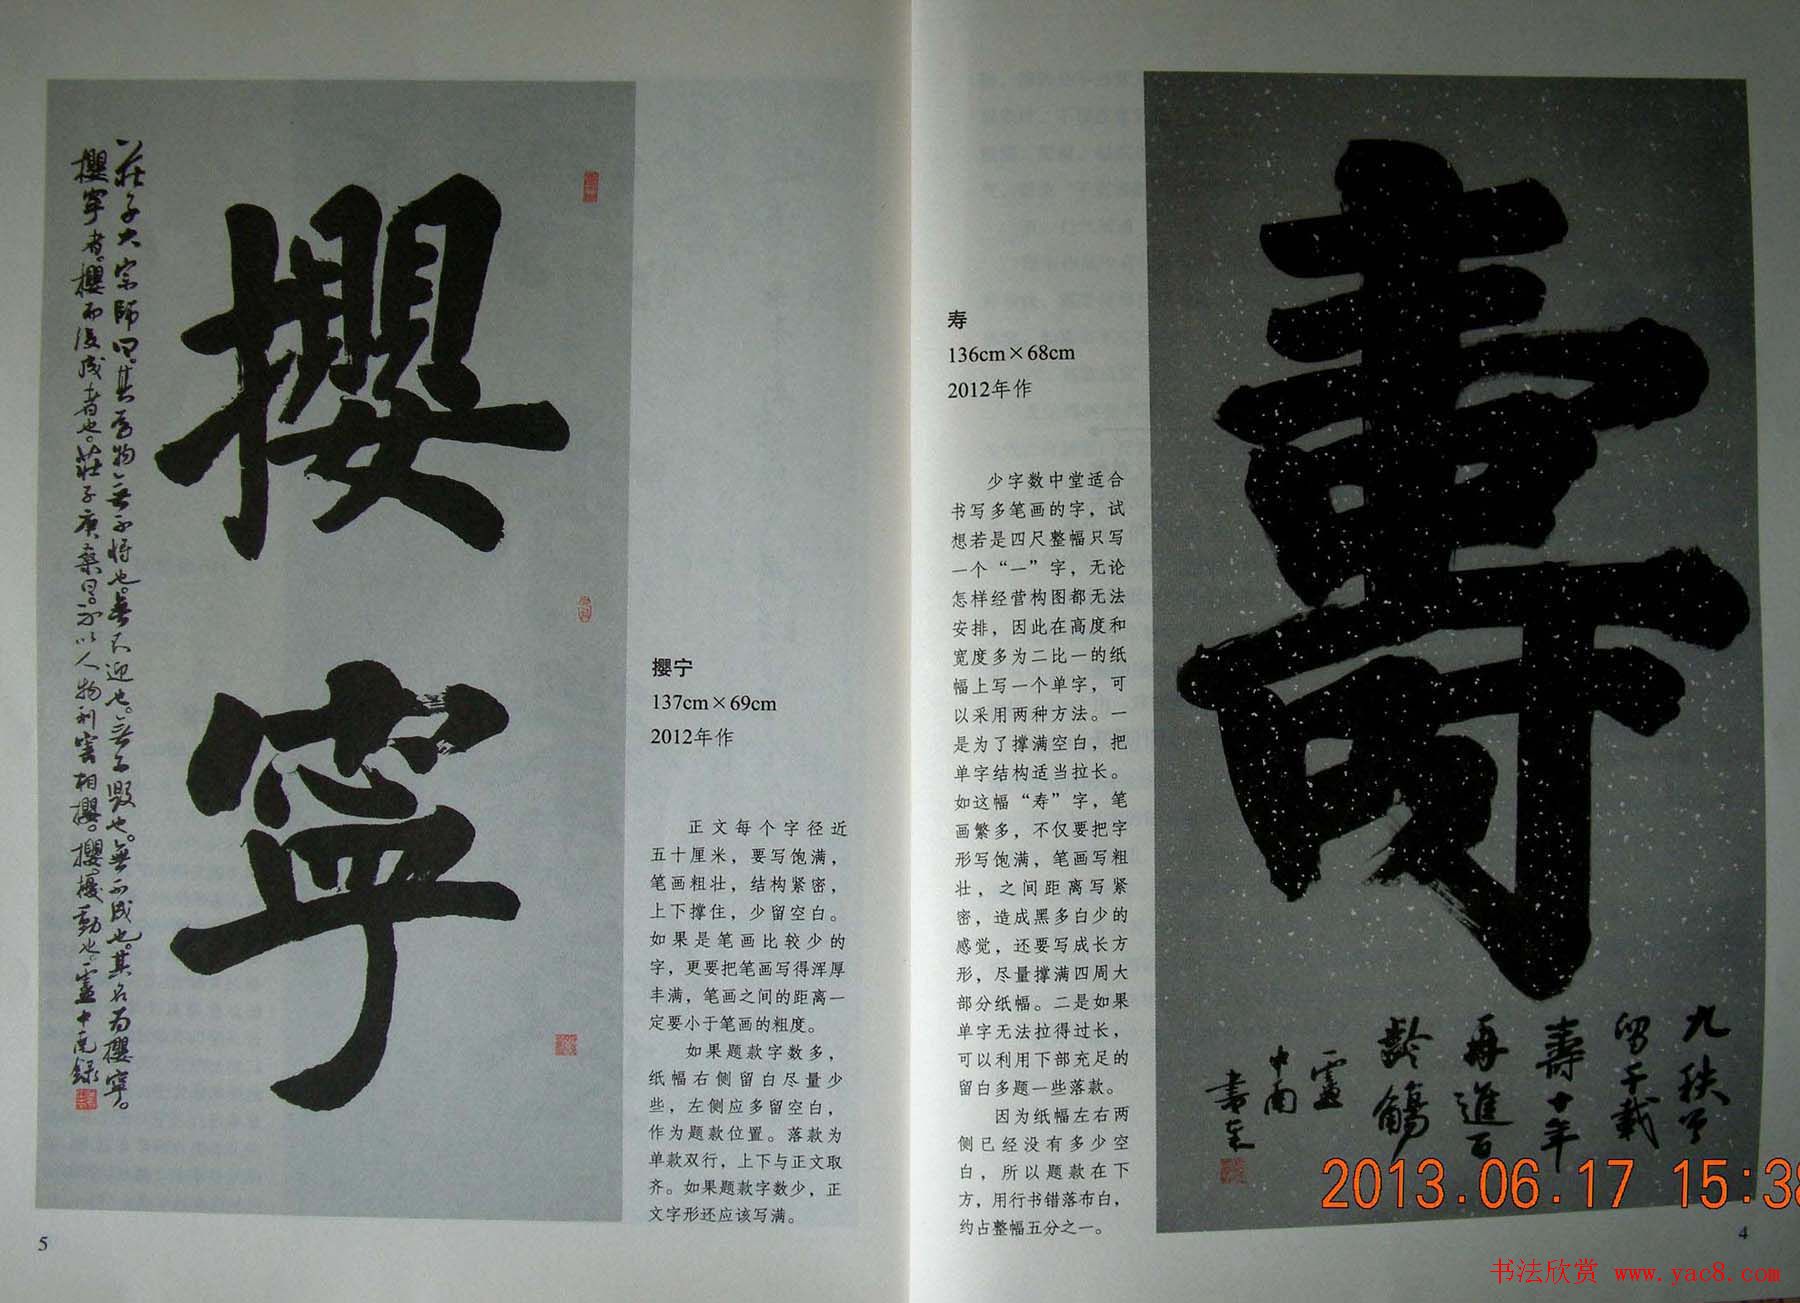 壽
九秩又
留千載
壽十年
再進百
齡觴
盧
中南
書之
寿
136cm×68cm
2012年作
少字数中堂适合
书写多笔画的字，试
想若是四尺整幅只写
一个“一”字，无论
怎样经营构图都无法
安排，因此在高度和
宽度多为二比一的纸
幅上写一个单字，可
以采用两种方法。一
是为了撑满空白，把
单字结构适当拉长。
如这幅“寿”字，笔
画繁多，不仅要把字
形写饱满，笔画写粗
壮，之间距离写紧
密，造成黑多白少的
感觉，还要写成长方
形，尽量撑满四周大
部分纸幅。二是如果
单字无法拉得过长，
可以利用下部充足的
留白多题一些落款。
因为纸幅左右两
侧已经没有多少空
白，所以题款在下
方，用行书错落布白，
约占整幅五分之一。
4
攖寧
莊子大宗師曰。其為物無不將也。無不迎也。無不毀也。無不成也。其名為攖寧。
攖寧者。攖而後成者也。莊子庚桑曰。不以人物利害相攖。攖擾動也。盧中南錄
攖宁
137cm×69cm
2012年作
正文每个字径近
五十厘米，要写饱满，
笔画粗壮，结构紧密，
上下撑住，少留空白。
如果是笔画比较少的
字，更要把笔画写得浑厚
丰满，笔画之间的距离一
定要小于笔画的粗度。
如果题款字数多，
纸幅右侧留白尽量少
些，左侧应多留空白，
作为题款位置。落款为
单款双行，上下与正文取
齐。如果题款字数少，正
文字形还应该写满。
5
2013.06.17 15:38
书法欣赏 www.yac8.com